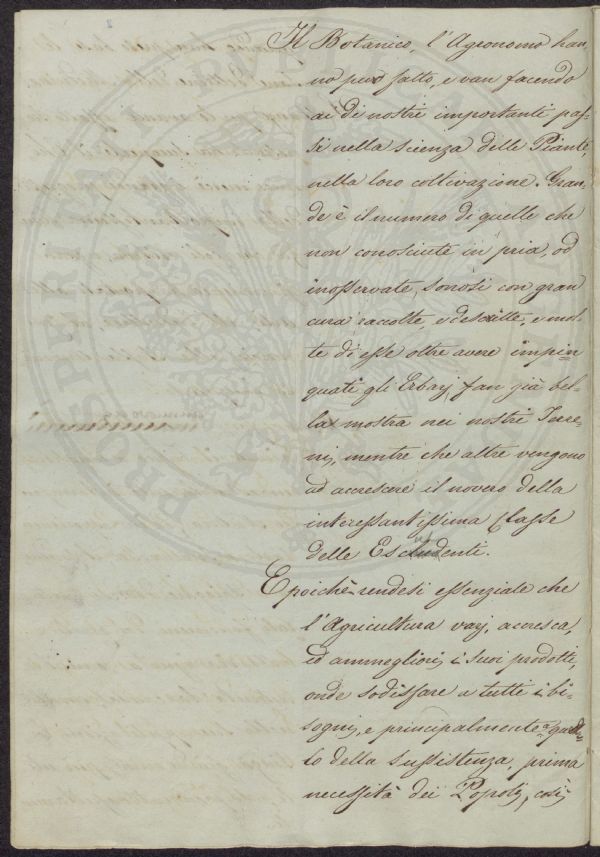 Il Botanico, l'Agronomo han-
no però fatto, e van facendo
ai dì nostri importanti pas-
si nella scienza delle Piante,
nella loro coltivazione. Gran-
de è il numero di quelle che
non conosciute in pria, od
inosservate, sonosi con gran
cura raccolte, e descritte, e mol-
te di esse oltre avere impin
guati gli Erbarj fan già bel-
la mostra nei nostri Terre-
ni, mentre che altre vengono
ad accrescere il novero della
interessantissima Classe
delle Esculenti.
E poichè rendesi essenziale che
l'Agricultura varj, accresca,
ed ammegliori i suoi prodotti,
onde sodisfare a tutti i bi-
sogni, e principalmente a quel-
lo della sussistenza, prima
necessità dei Popoli, così
PROSPERITATI PVBLICAE